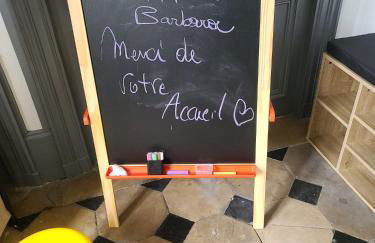 Barbara
Merci de
Votre
Accueil ♡